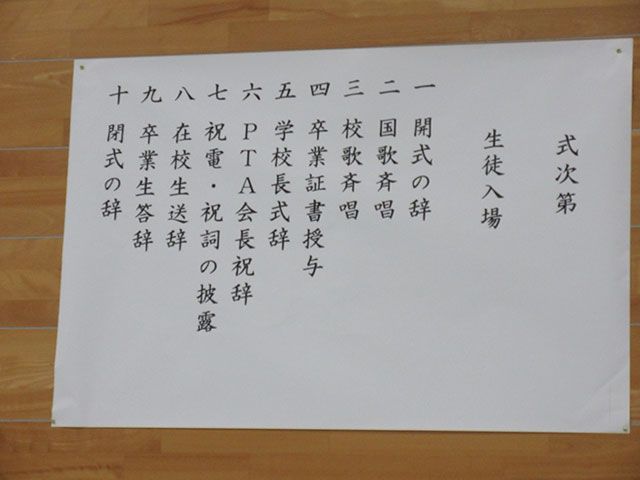 式次第
生徒入場
一 開式の辞
二 国歌斉唱
三 校歌斉唱
四 卒業証書授与
五 学校長式辞
六 PTA会長祝辞
七 祝電・祝詞の披露
八 在校生送辞
九 卒業生答辞
十 閉式の辞